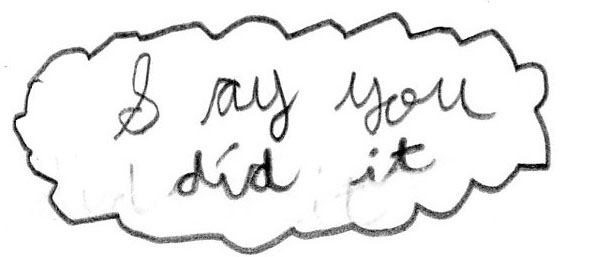 Say you
did it